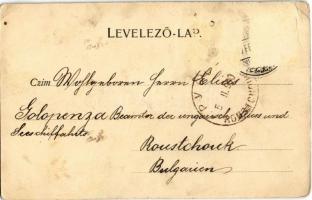 LEVELEZŐ-LAP.
Czim Wohlgeboren Herrn
Golopenza Beamter der ungarisch Fluss und
Seeschiffahrts
Roustchouk
Bulgarien